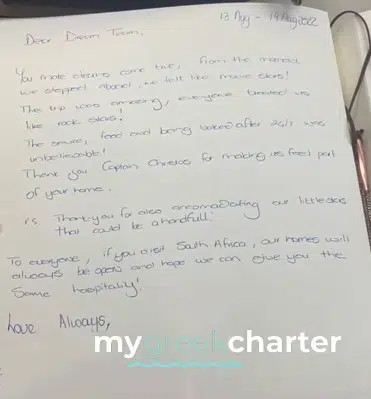 13 Aug - 19 Aug 2022
Dear Dream Team,
You make dreams come true, from the moment
we stepped aboard, we felt like movie stars!
The trip was amazing, everyone treated us
like rock stars!
The service, food and being looked after 24/7 was
unbelievable!
Thank you Captain Christos for making us feel part
of your home.
P.S. Thank you for also accomodating our little ones
that could be a handfull.
To everyone, if you visit South Africa, our homes will
always be open and hope we can give you the
same hospitality!
Love Always,
mygreekcharter